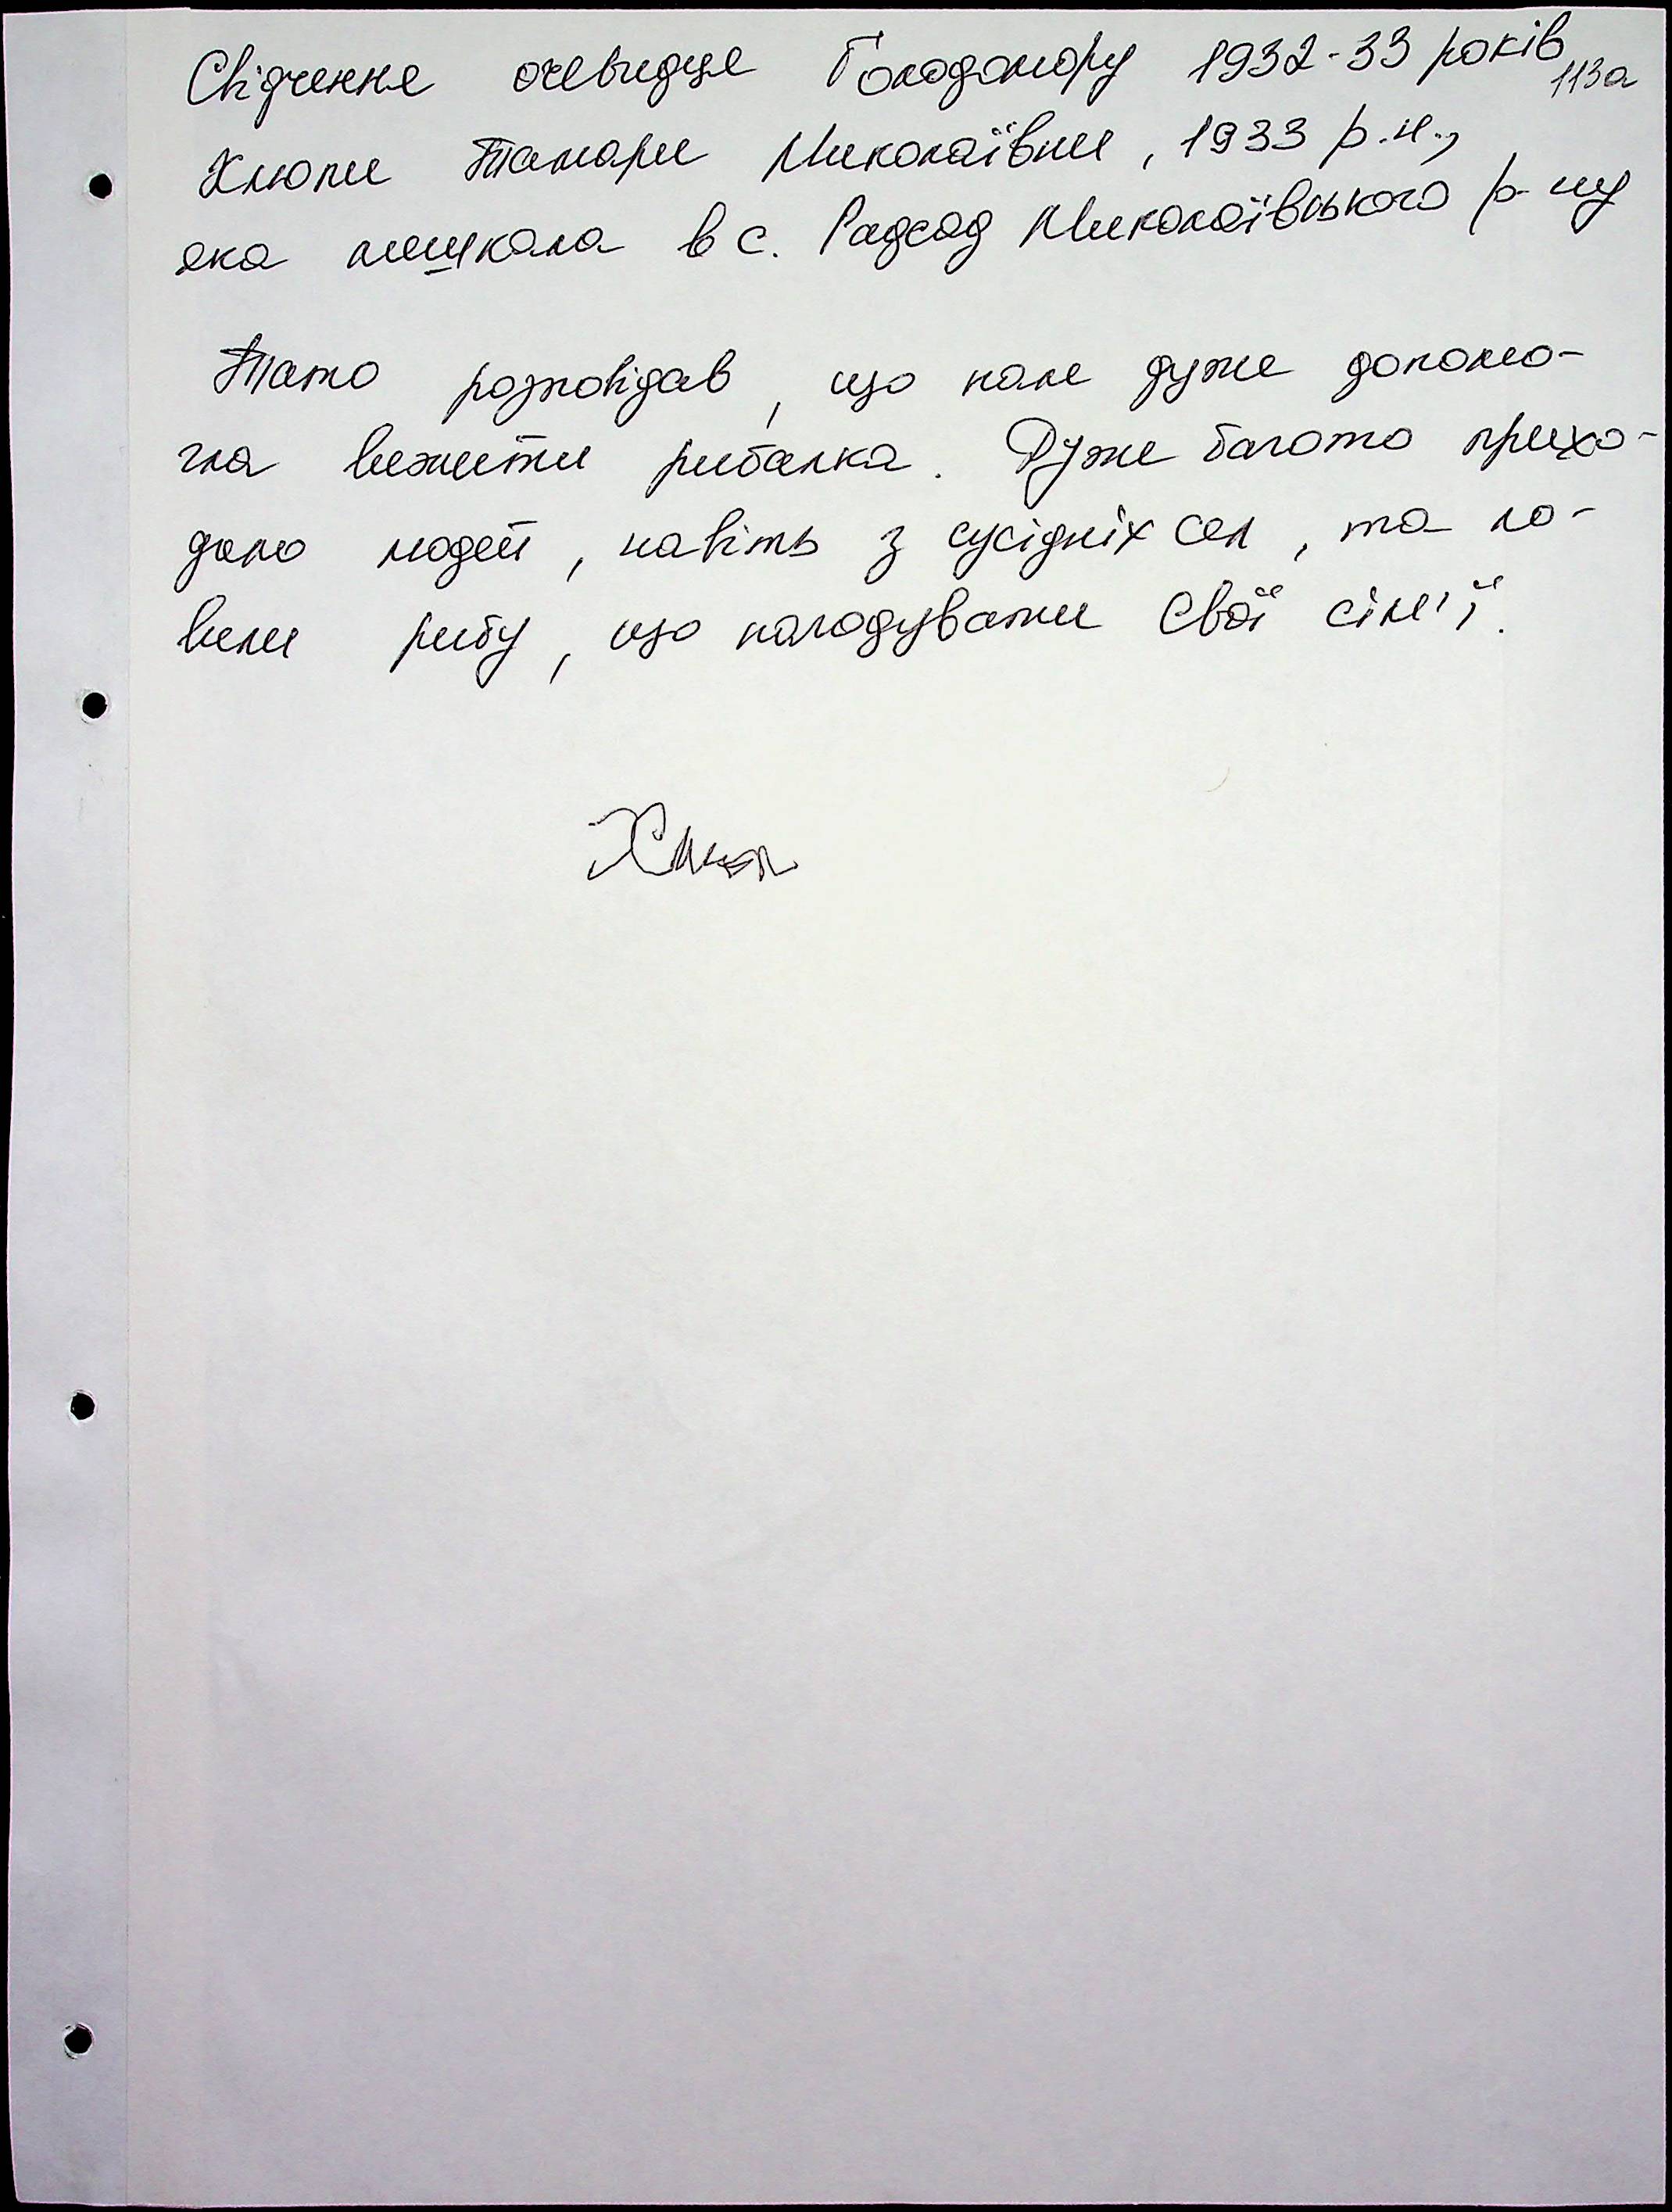 Свідчення очевидця Голодомору 1932-33 років
113а
Хлюпи Тамари Миколаївни, 1933 р.н.,
яка мешкала в с. Радсад Миколаївського р-ну
Тато розповідав, що нам дуже допомо-
гла вижити рибалка. Дуже багато прихо-
дило людей, навіть з сусідніх сел, та ло-
вили рибу, що нагодувати свої сім'ї.